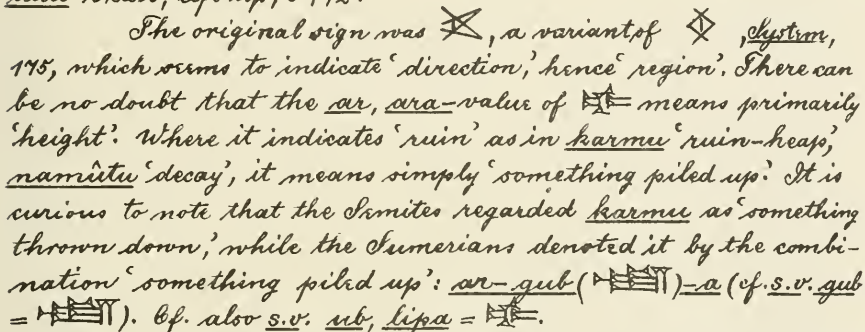 The original sign was , a variant of , System,
175, which seems to indicate ‘direction,’ hence ‘region’. There can
be no doubt that the ar, ara-value of means primarily
‘height’. Where it indicates ‘ruin’ as in karmu ‘ruin-heap,’
namûtu ‘decay’, it means simply ‘something piled up’. It is
curious to note that the Semites regarded karmu as ‘something
thrown down,’ while the Sumerians denoted it by the combi-
nation ‘something piled up’: ar-gub ( )-a (cf. s.v. gub
= ). Cf. also s.v. ub, lipa = .